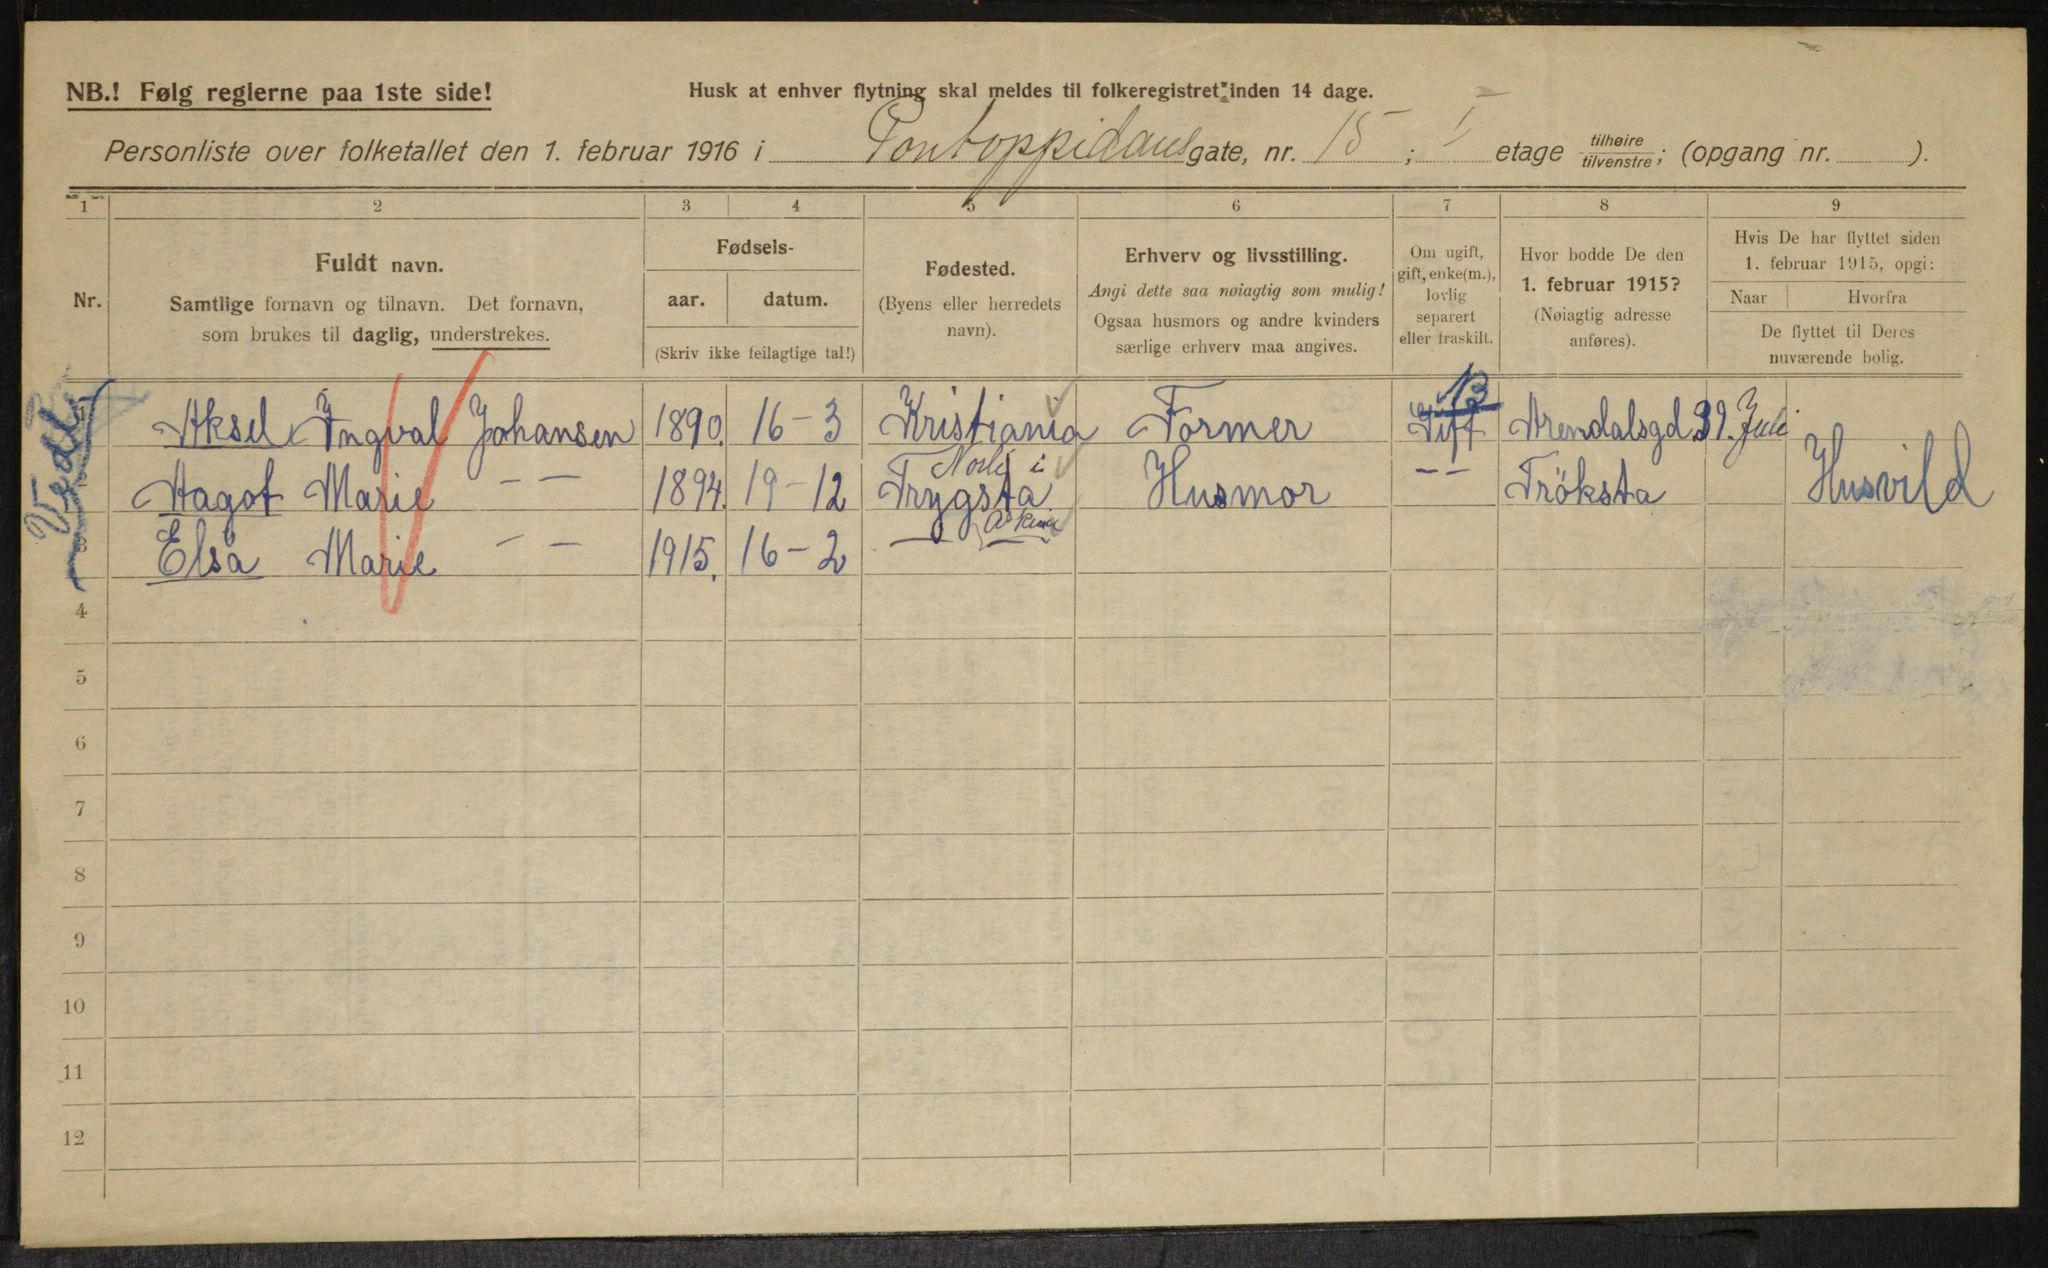 NB.! Følg reglerne paa 1ste side!
Husk at enhver flytning skal meldes til folkeregistret inden 14 dage.
Personliste over folketallet den 1. februar 1916 i Pontoppidans gate, nr. 15 ; I etage tilhøire/tilvenstre; (opgang nr. ).
1 2 3 4 5 6 7 8 9
Nr.
Fuldt navn.
Samtlige fornavn og tilnavn. Det fornavn,
som brukes til daglig, understrekes.
Fødsels-
aar. datum.
(Skriv ikke feilagtige tal!)
Fødested.
(Byens eller herredets
navn).
Erhverv og livsstilling.
Angi dette saa nøiagtig som mulig!
Ogsaa husmors og andre kvinders
særlige erhverv maa angives.
Om ugift,
gift, enke(m.),
lovlig
separert
eller fraskilt.
Hvor bodde De den
1. februar 1915?
(Nøiagtig adresse
anføres).
Hvis De har flyttet siden
1. februar 1915, opgi:
Naar Hvorfra
De flyttet til Deres
nuværende bolig.
1 Aksel Ingval Johansen 1890. 16-3 Kristiania Former Gift Arendalsgd. 39. Juli
2 Hagot Marie — — 1894. 19-12 Trygsta Husmor — — Tröksta Husvild
3 Elsa Marie — — 1915. 16-2 —
4
5
6
7
8
9
10
11
12